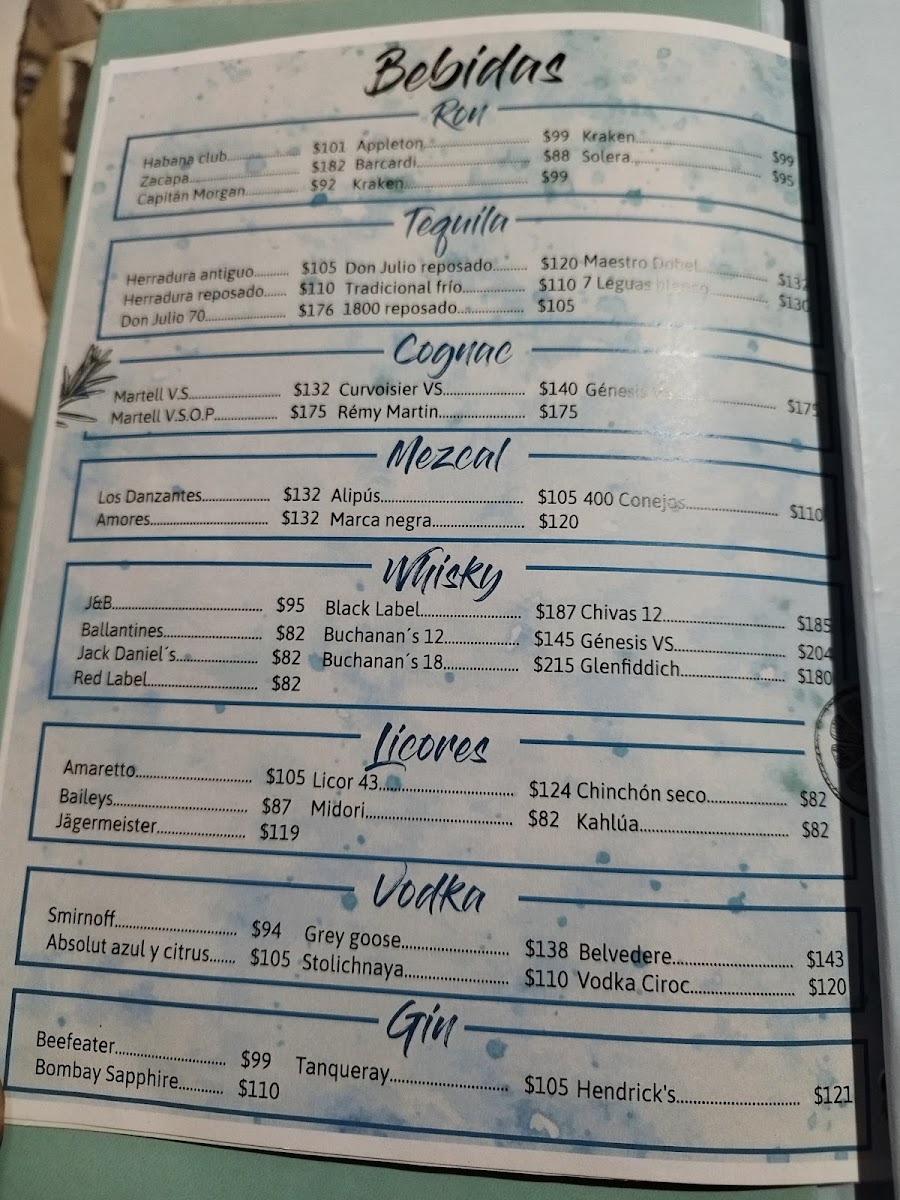 Bebidas
Ron
Habana club............ $101 Appleton............ $99 Kraken............ $99
Zacapa............ $182 Barcardi............ $88 Solera............ $95
Capitán Morgan............ $92 Kraken............ $99
Tequila
Herradura antiguo.......... $105 Don Julio reposado......... $120 Maestro Dobel............ $132
Herradura reposado...... $110 Tradicional frío............ $110 7 Léguas blanco............ $130
Don Julio 70............ $176 1800 reposado............ $105
Cognac
Martell V.S............ $132 Curvoisier VS............ $140 Génesis ............ $175
Martell V.S.O.P............ $175 Rémy Martin............ $175
Mezcal
Los Danzantes............ $132 Alipús............ $105 400 Conejos............ $110
Amores............ $132 Marca negra............ $120
Whisky
J&B............ $95 Black Label............ $187 Chivas 12............ $185
Ballantines............ $82 Buchanan´s 12............ $145 Génesis VS............ $204
Jack Daniel´s............ $82 Buchanan´s 18............ $215 Glenfiddich............ $180
Red Label............ $82
Licores
Amaretto............ $105 Licor 43............ $124 Chinchón seco............ $82
Baileys............ $87 Midori............ $82 Kahlúa............ $82
Jägermeister............ $119
Vodka
Smirnoff............ $94 Grey goose............ $138 Belvedere............ $143
Absolut azul y citrus....... $105 Stolichnaya............ $110 Vodka Ciroc............ $120
Gin
Beefeater............ $99 Tanqueray............ $105 Hendrick's............ $121
Bombay Sapphire............ $110